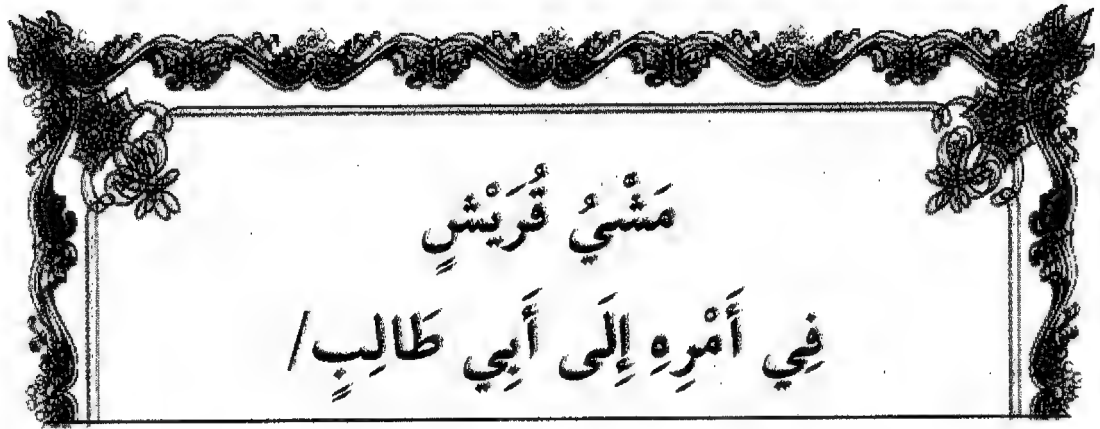 مَشْيُ قُرَيْشٍ
فِي أَمْرِهِ إِلَى أَبِي طَالِبٍ/